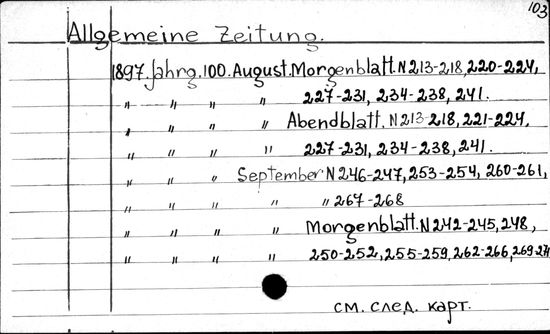 103
Allgemeine Zeitung.
1897. Jahrg. 100. August. Morgenblatt. N 213-218, 220-224,
" " " " 227-231, 234-238, 241.
" " " " Abendblatt. N 213-218, 221-224,
" " " " 227-231, 234-238, 241.
" " " September N 246-247, 253-254, 260-261,
" " " " " 267-268
" " " " Morgenblatt. N 242-245, 248,
" " " " 250-252, 255-259, 262-266, 269-274
см. след. карт.